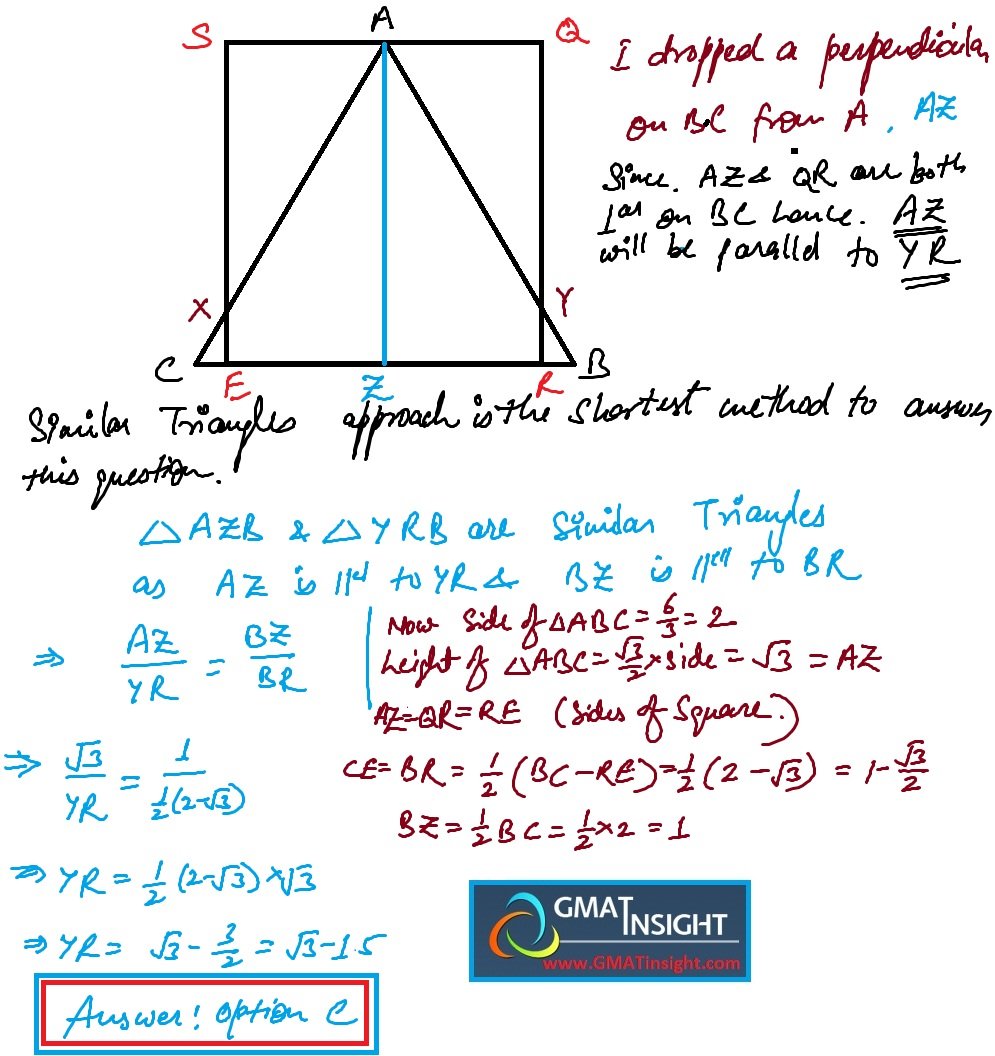 S A Q
I dropped a perpendicular
on BC from A, AZ
Since. AZ & QR are both
⊥ar on BC hence. AZ
will be parallel to YR
X Y
C E Z R B
Similar Triangles approach is the shortest method to answer
this question.
△AZB & △YRB are Similar Triangles
as AZ is ||el to YR & BZ is ||el to BR
⇒ AZ/YR = BZ/BR
Now Side of △ABC = 6/3 = 2
height of △ABC = √3/2 × side = √3 = AZ
AZ=QR=RE (Sides of Square.)
⇒ √3/YR = 1/(½(2-√3))
CE = BR = ½(BC-RE) = ½(2-√3) = 1-√3/2
BZ = ½BC = ½×2 = 1
⇒ YR = ½(2-√3)×√3
⇒ YR = √3 - 3/2 = √3-1.5
Answer! Option C
GMAT INSIGHT
www.GMATinsight.com